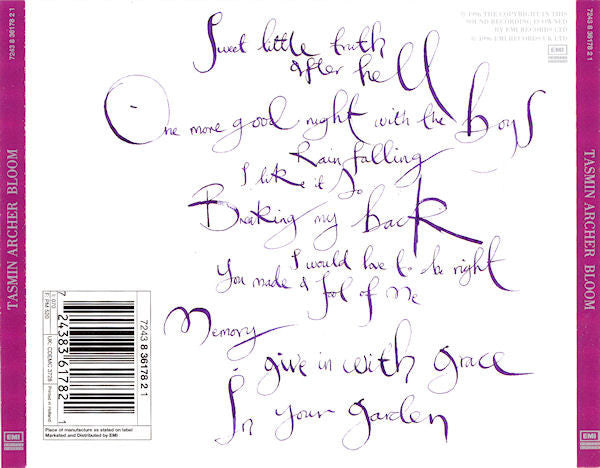 7243 8 36178 2 1
TASMIN ARCHER BLOOM
EMI
Sweet little truth
after hell
One more good night with the boys
Rain falling
I like it so
Breaking my back
I would love to be right
You made a fool of me
Memory
I give in with grace
In your garden
℗ 1996 THE COPYRIGHT IN THIS
SOUND RECORDING IS OWNED
BY EMI RECORDS LTD
© 1996 EMI RECORDS UK LTD
EMI
7243 8 36178 2 1
7 24383 61782 1
UK: CDEMC 3728
Printed in Holland
Place of manufacture as stated on label
Marketed and Distributed by EMI
7243 8 36178 2 1
TASMIN ARCHER BLOOM
EMI